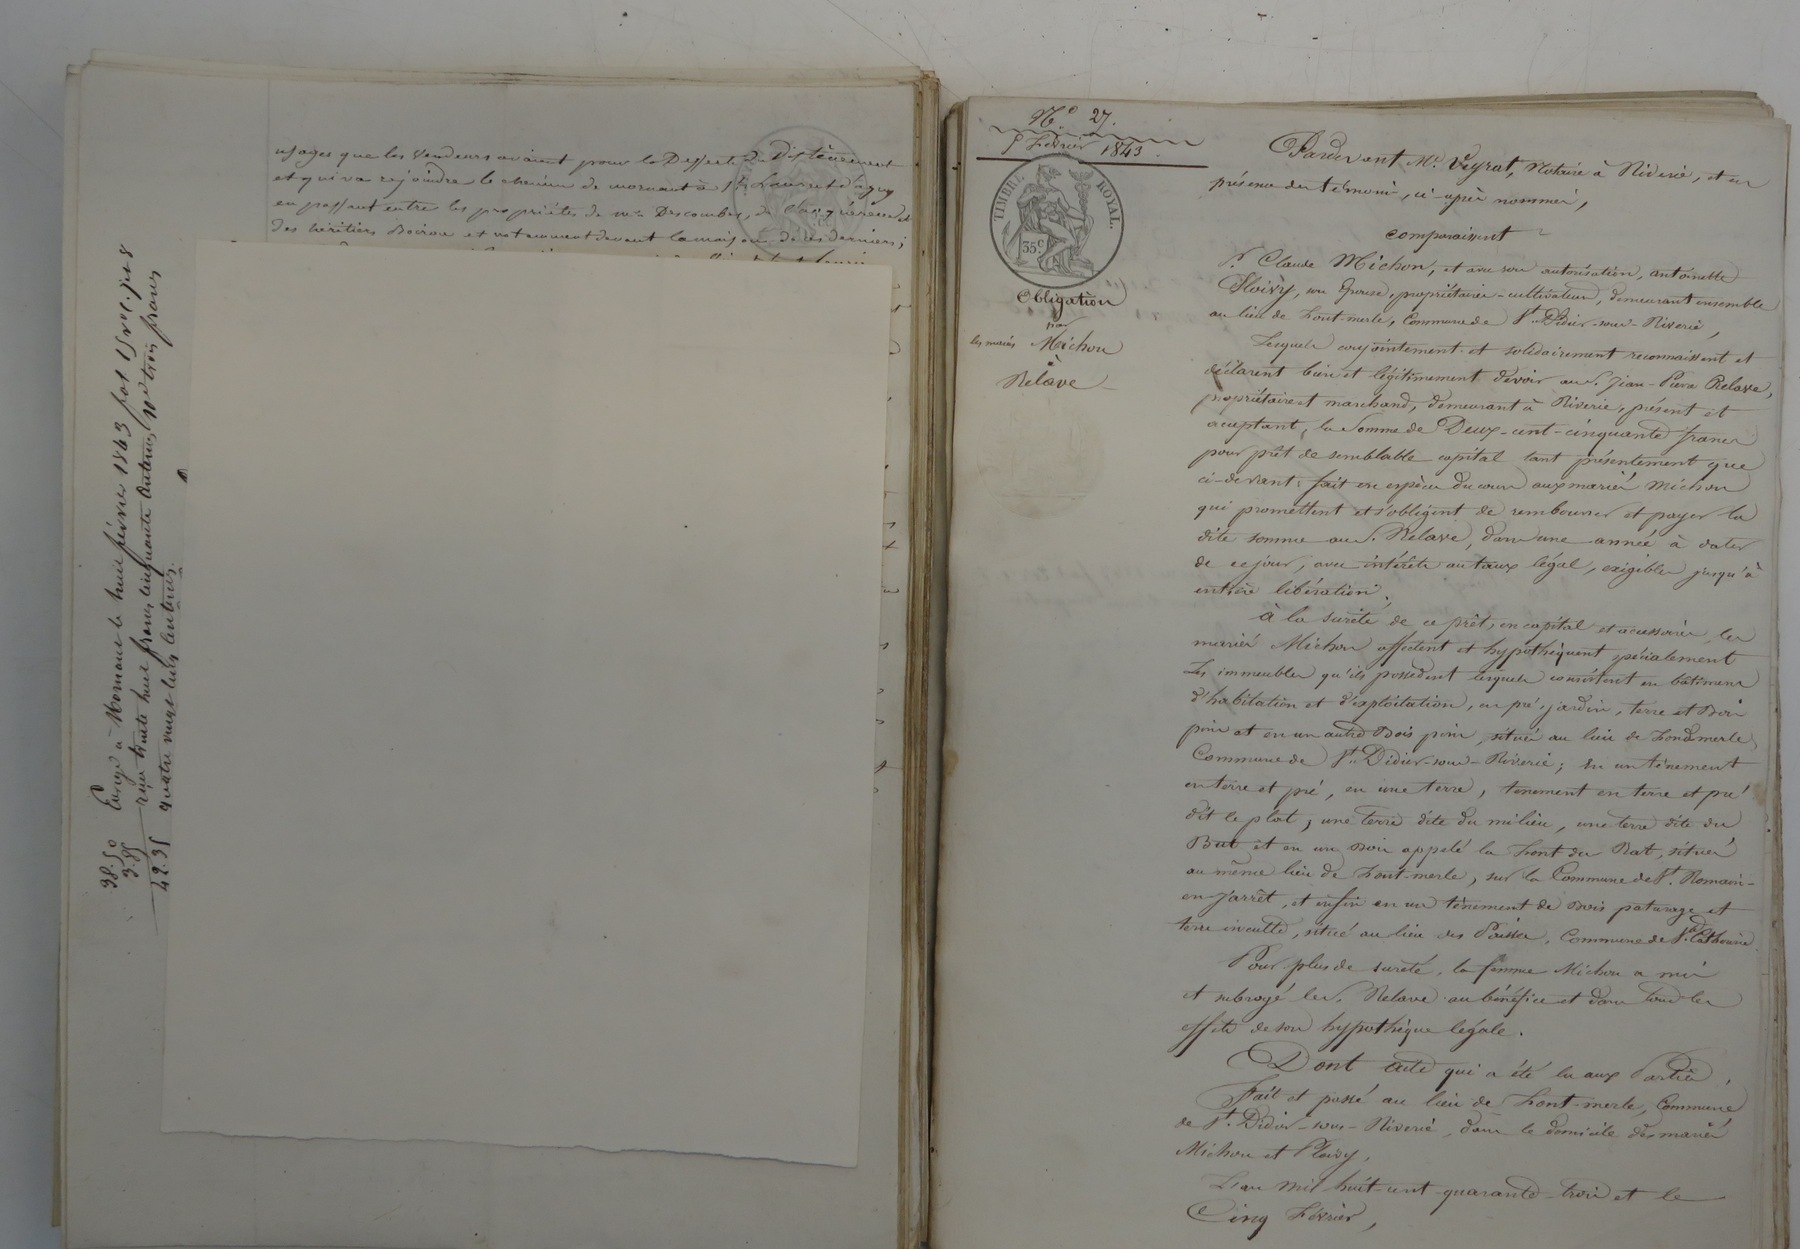 usages que les vendeurs avaient pour la Desserte du Dit tènement
et qui va rejoindre le chemin de mornant à St Laurent d'agny
en passant entre les propriétés de mrs Descombes, de
des héritiers Boiron et notamment devant la maison de ces derniers;
Enrgé à Mornant le huit février 1843 fol 15 vo c. 7 et 8
reçu trente huit francs cinquante centimes, 10e trois francs
quatre vingt cinq centimes.
38.50
3.85
42.35
No 27.
5 Février 1843.
TIMBRE ROYAL.
35c
Obligation
par
les mariés Michon
à
Relave
Pardevant Me Veyrat, Notaire à Riverie, et en
présence des témoins, ci-après nommés,
comparaissent
Sr Claude Michon, et avec son autorisation, antoinette
Fleivy, son Epouse, propriétaires-cultivateurs, demeurant ensemble
au lieu de Font-merle, Commune de St Didier-sous-Riverie,
Lesquels conjointement et solidairement reconnaissent et
déclarent bien et légitimement devoir au sr. Jean-Pierre Relave,
propriétaire et marchand, demeurant à Riverie, présent et
acceptant, la Somme de Deux-cent-cinquante francs
pour prêt de semblable capital tant présentement que
ci-devant fait en espèces du cours aux mariés Michon
qui promettent et s'obligent de rembourser et payer la
dite somme au sr. Relave, dans une année à dater
de ce jour, avec intérêts au taux légal, exigibles jusqu'à
entière libération.
à la sureté de ce prêt, en capital et accessoires, les
mariés Michon affectent et hypothèquent spécialement
Les immeubles qu'ils possèdent lesquels consistent en bâtiments
d'habitation et d'exploitation, en pré, jardin, terre et Bois
pins et en un autre Bois pins, situés au lieu de Fondmerle,
Commune de St Didier-sous-Riverie; En un tènement
en terre et pré, en une terre, tènement en terre et pré
dit le plat, une terre dite du milieu, une terre dite du
But et en un Bois appelé la Font du Rat, situés
au même lieu de Font-merle, sur la Commune de St. Romain-
en-jarrêt, et enfin en un tènement de Bois paturage et
terre inculte, situé au lieu des, Commune de Ste Catherine.
Pour plus de sureté, la femme Michon a mis
et subrogé le sr. Relave au bénéfice et dans tous les
effets de son hypothèque légale.
Dont acte qui a été lu aux Parties,
Fait et passé au lieu de Font-merle, Commune
de St. Didier-sous-Riverie, dans le domicile des mariés
Michon et Fleivy,
L'an mil huit-cent-quarante-trois et le
Cinq Février,